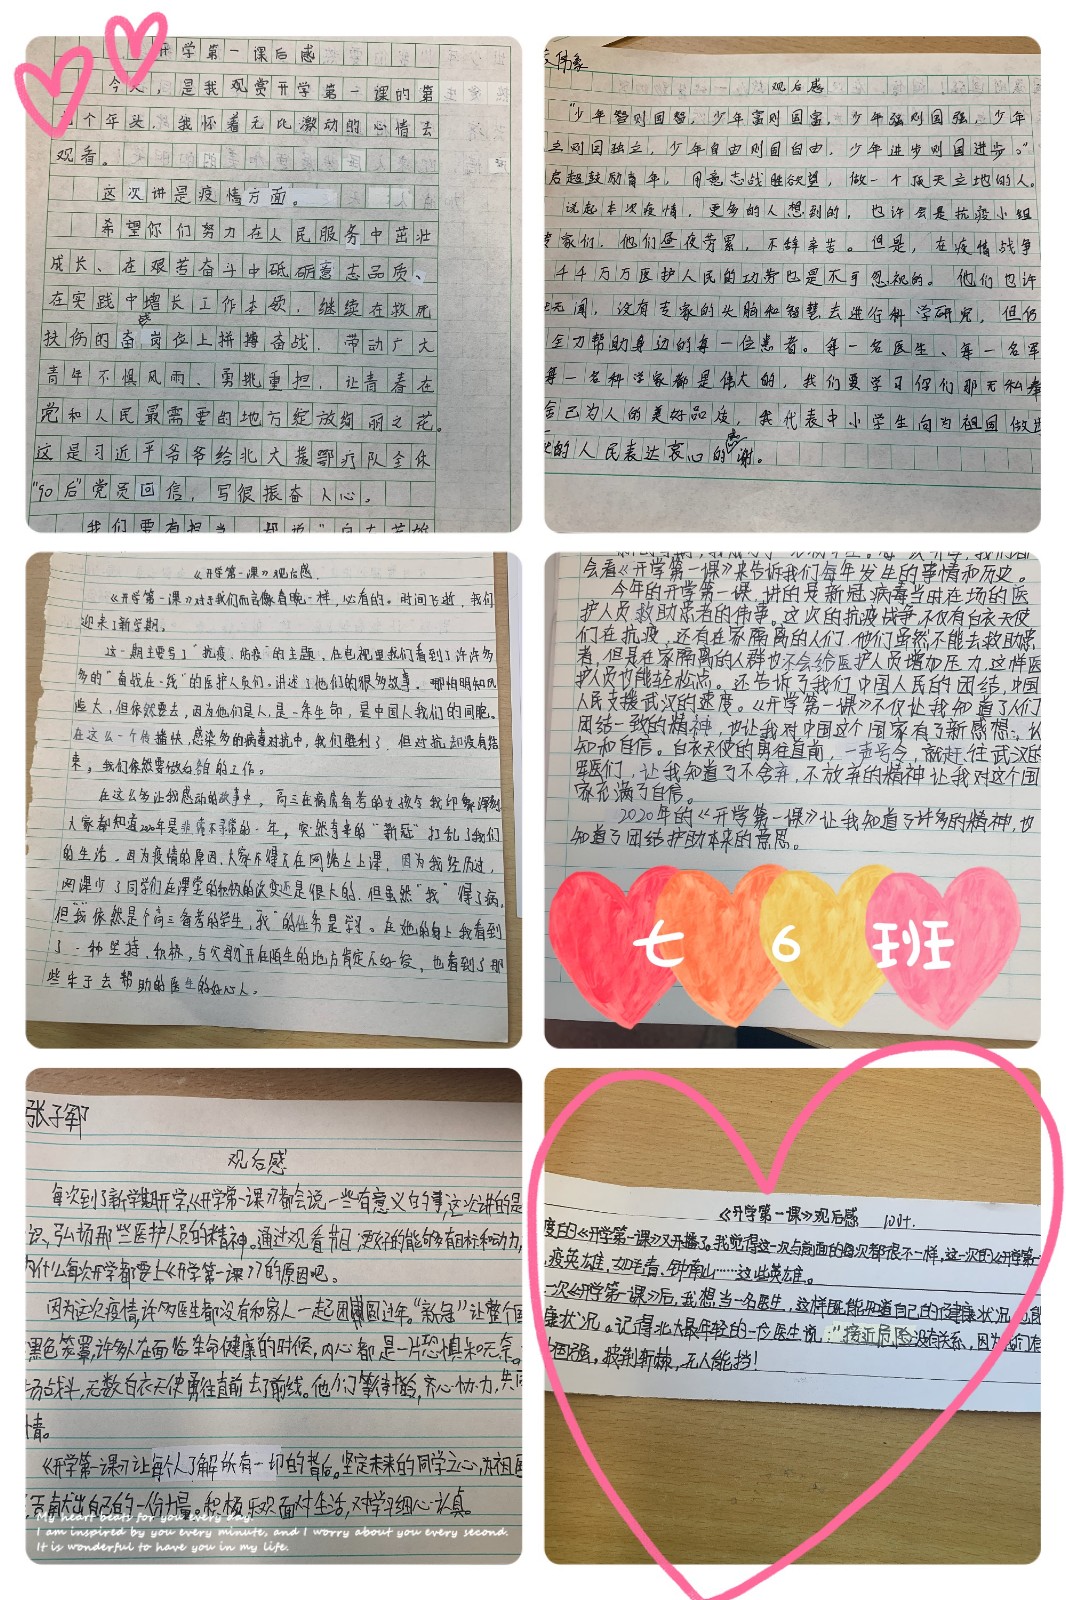 开学第一课后感
今天,是我观赏开学第一课的第
个年头,我怀着无比激动的心情去
观看。
这次讲是疫情方面。
希望你们努力在人民服务中茁壮
成长、在艰苦奋斗中砥砺意志品质、
在实践中增长工作本领,继续在救死
扶伤的奋岗位上拼搏奋战,带动广大
青年不惧风雨、勇挑重担,让青春在
党和人民最需要的地方绽放绚丽之花。
这是习近平爷爷给北大援鄂疗队全体
"90后"党员回信,写很振奋人心。
我们要有担当
观后感
"少年智则国智,少年富则国富,少年强则国强,少年
立则国独立,少年自由则国自由,少年进步则国进步。"
启超鼓励青年,用意志战胜欲望,做一个顶天立地的人。
说起本次疫情,更多的人想到的,也许会是抗疫小组
家们,他们昼夜劳累,不辞辛苦。但是,在疫情战争
44万万医护人民的功劳也是不可忽视的。他们也许
无闻,没有专家的头脑和智慧去进行科学研究,但仍
全力帮助身边的每一位患者。每一名医生、每一名军
每一名科学家都是伟大的,我们要学习你们那无私奉
舍己为人的美好品质,我代表中小学生向为祖国做出
的人民表达衷心的感谢。
《开学第一课》观后感
《开学第一课》对于我们而言像春晚一样,必看的。时间飞逝,我们
迎来了新学期。
这一期主要写了"抗疫、防疫"的主题,在电视里我们看到了许许多
多的"奋战在一线"的医护人员们。讲述了他们的很多故事。哪怕明知风
险大,但依然要去,因为他们是人,是一条生命,是中国人我们的同胞。
在这么一个传播快,感染多的病毒对抗中,我们胜利了,但对抗却没有结
束。我们依然要做好各自的工作。
在这么多让我感动的故事中,高三在病房备考的女孩令我印象深刻
大家都知道2020年是非常不寻常的一年,突然有来的"新冠"打乱了我们
的生活,因为疫情的原因,大家不得不在网络上上课,因为我经历过,
网课少了同学们在课堂的积极的改变还是很大的,但虽然"我"得了病,
但"我"依然是个高三备考的学生,"我"的任务是学习。在她的身上我看到
了一种坚持、积极,与父母分开在陌生的地方肯定不好受,也看到了那
些乐于去帮助的医生的好心人。
会看《开学第一课》来告诉我们每年发生的事情和历史。
今年的开学第一课,讲的是新冠病毒当时在场的医
护人员救助患者的伟事。这次的抗疫战争,不仅有白衣天使
们在抗疫,还有在家隔离的人们,他们虽然不能去救助患
者,但是在家隔离的人群也不会给医护人员增加压力,这样医
护人员也能轻松点。还告诉了我们中国人民的团结,中国
人民支援武汉的速度。《开学第一课》不仅让我知道了人们
团结一致的精神,也让我对中国这个国家有了新感想、认
知和自信。白衣天使的勇往直前,一声号令,就赶往武汉的
军医们,让我知道了不舍弃,不放弃的精神让我对这个国
家充满了自信。
2020年的《开学第一课》让我知道了许多的精神,也
知道了团结护助本来的意思。
七 6 班
张子郓
观后感
每次到了新学期开学,《开学第一课》都会说一些有意义的事,这次讲的是
识,弘扬那些医护人员的精神。通过观看节目,更好的能够有目标和动力,
为什么每次开学都要上《开学第一课》的原因吧。
因为这次疫情,许多医生都没有和家人一起团圆过年。"新冠"让整个国
黑色笼罩,许多人在面临生命健康的时候,内心都是一片恐惧和无奈。
场战斗,无数白衣天使勇往直前去了前线。他们等待指令,齐心协力,共同
情。
《开学第一课》让每个人了解所有一切的背后。坚定未来的同学之心,为祖国
贡献出自己的一份力量。积极乐观面对生活,对学习细心认真。
My heart beats for you every day.
I am inspired by you every minute, and I worry about you every second.
It is wonderful to have you in my life.
《开学第一课》观后感
度的《开学第一课》又开播了。我觉得这一次与前面的每次都很不一样,这一次的《开学第一
疫英雄,如陈、钟南山……这些英雄。
一次《开学第一课》后,我想当一名医生,这样既能知道自己的健康状况,也能
康状况。记得北大最年轻的一位医生说:"接近危险没有关系,因为我们有
坚强。披荆斩棘,无人能挡!